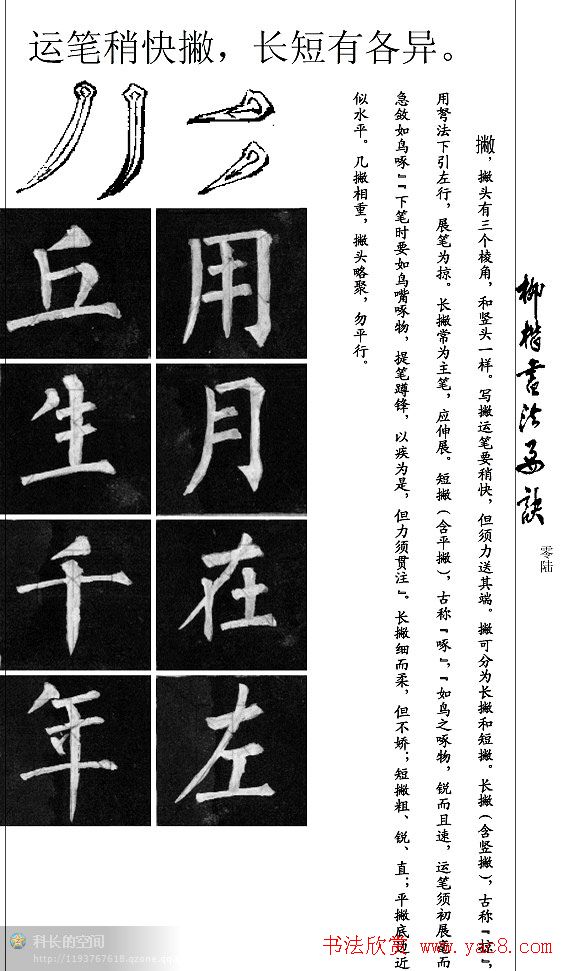 运笔稍快撇，长短有各异。
柳楷書法要訣
零陆
撇，撇头有三个棱角，和竖头一样。写撇运笔要稍快，但须力送其端。撇可分为长撇和短撇。长撇（含竖撇），古称『掠』，
用弩法下引左行，展笔为掠。长撇常为主笔，应伸展。短撇（含平撇），古称『啄』，『如鸟之啄物，锐而且速，运笔须初展而
急敛如鸟啄』『下笔时要如鸟嘴啄物，提笔蹲锋，以疾为是，但力须贯注』。长撇细而柔，但不娇；短撇粗、锐、直；平撇底边近
似水平。几撇相重，撇头略聚，勿平行。
用月在左
丘生千年
科长的空间
http://1193767618.qzone.qq
书法欣赏 www.yac8.com